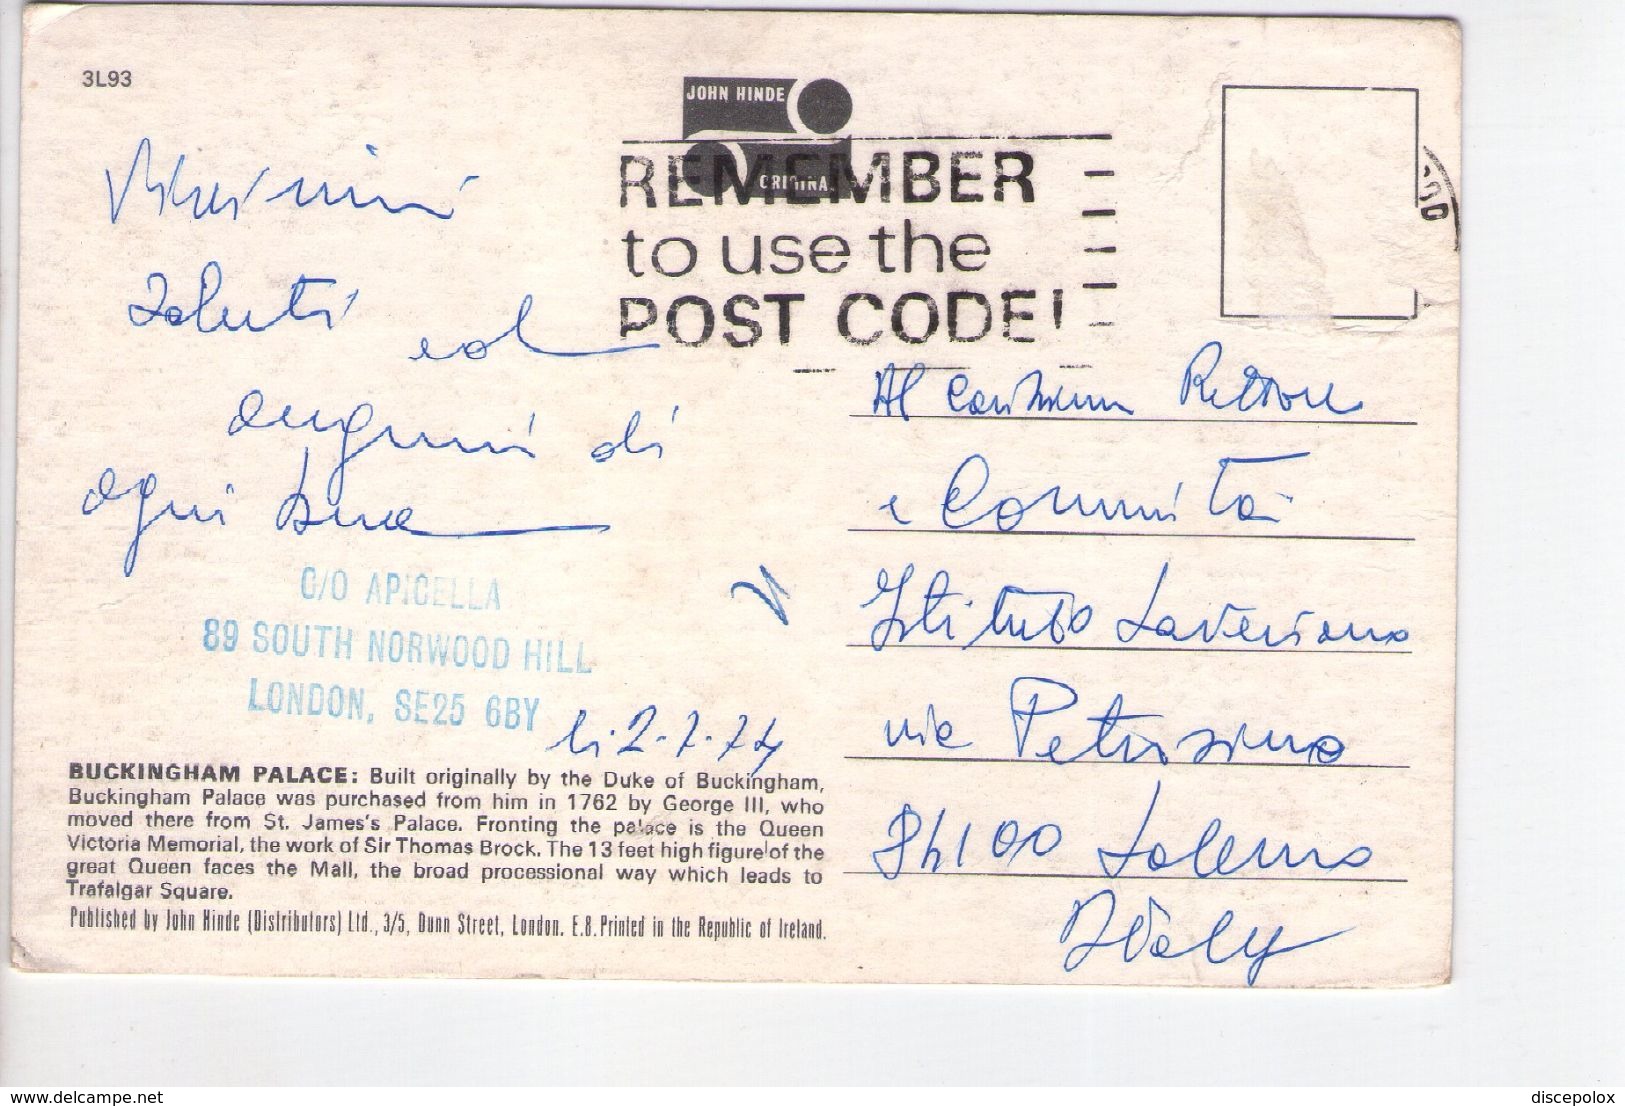 3L93
JOHN HINDE
ORIGINAL
REMEMBER
to use the
POST CODE!
saluti
ed
auguri di
ogni bene
C/O APICELLA
89 SOUTH NORWOOD HILL
LONDON, SE25 6BY
li 2-7-74
Al Rettore
e Comunità
Istituto Saveriano
via
84100 Salerno
Italy
BUCKINGHAM PALACE: Built originally by the Duke of Buckingham,
Buckingham Palace was purchased from him in 1762 by George III, who
moved there from St. James's Palace. Fronting the palace is the Queen
Victoria Memorial, the work of Sir Thomas Brock. The 13 feet high figure of the
great Queen faces the Mall, the broad processional way which leads to
Trafalgar Square.
Published by John Hinde (Distributors) Ltd., 3/5, Dunn Street, London. E.8. Printed in the Republic of Ireland.
delcampe.net
discepolox